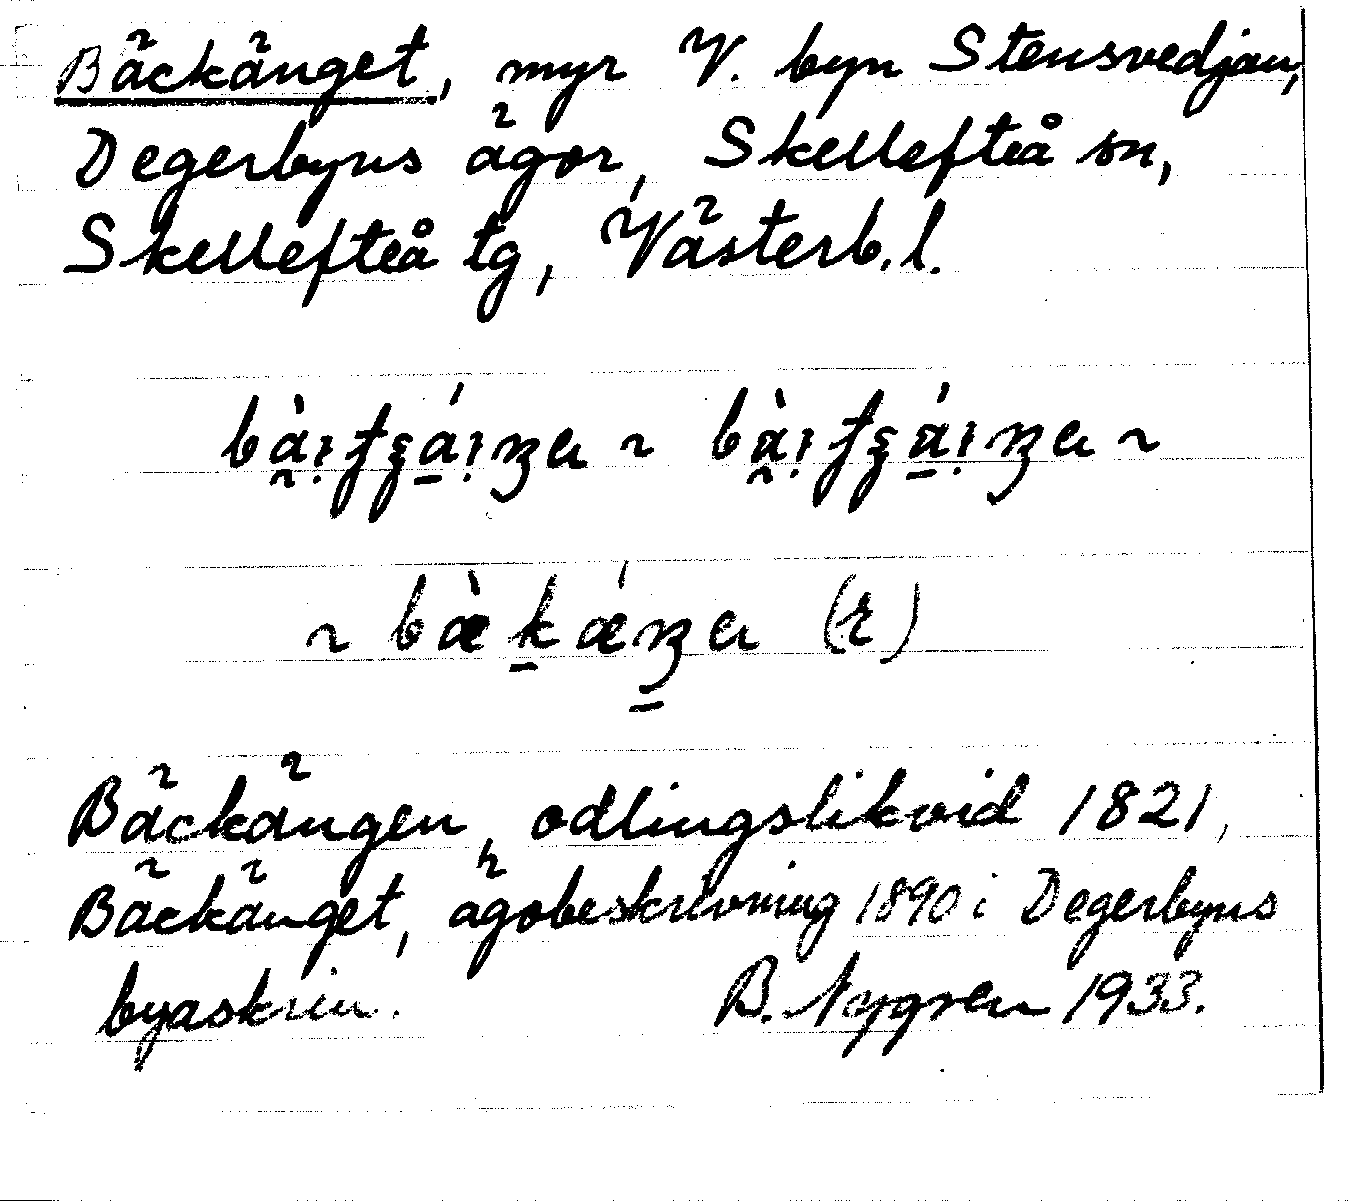 Bäckänget, myr V. byn Stensvedjan,
Degerbyns ägor, Skellefteå sn,
Skellefteå tg, Västerb. l.
~
~ (r)
Bäckängen, odlingslikvid 1821,
Bäckänget, ägobeskrivning 1890 i Degerbyns
byaskrin. B. Nygren 1933.